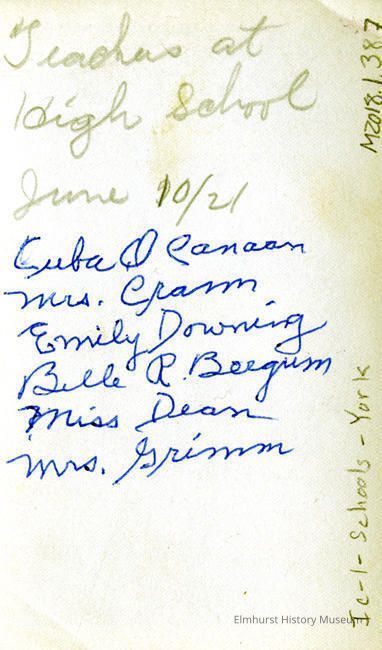 Teachers at
High School
June 10/21
Cuba O Canaan
Mrs. Cramm
Emily Downing
Belle R. Beegum
Miss Dean
Mrs. Grimm
M2018.1.387
Ic-1-Schools-York
Elmhurst History Museum